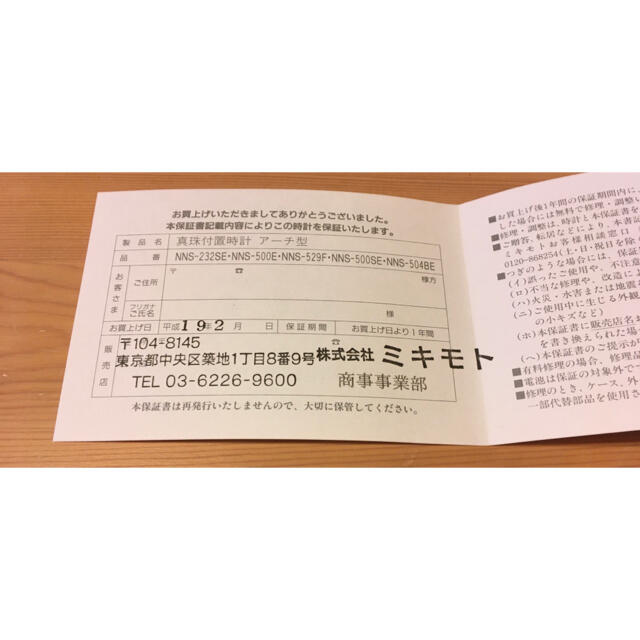 お買上げいただきましてありがとうございました。
本保証書記載内容によりこの時計を保証いたします。
製品名 真珠付置時計 アーチ型
品番 NNS-232SE・NNS-500E・NNS-529F・NNS-500SE・NNS-504BE
お客さま ご住所 〒 ☎ 様方
フリガナ ご氏名 様
お買上げ日 平成 19年2月 日 保証期間 お買上げ日より1年間
販売店 〒104-8145
東京都中央区築地1丁目8番9号 株式会社 ミキモト
TEL 03-6226-9600 商事事業部
本保証書は再発行いたしませんので、大切に保管してください。
■お買上げ後1年間の保証期間内に、
した場合には無料で修理・調整い
■修理・調整は、時計と本保証書を
■ご贈答、転居などにより、本書記
ミキモトお客様相談窓口
0120-868254(土・日・祝日を除
■つぎのような場合には、保証
(イ)誤ったご使用や、不注意
(ロ)不当な修理や、改造に
(ハ)火災・水害または地震
(ニ)ご使用中に生じる外観
の小キズなど)
(ホ)本保証書に販売店名お
を書き換えられた場
(ヘ)本保証書のご提示が
■有料修理の場合、修理
■電池は保証の対象外で
■修理のとき、ケース、外
一部代替部品を使用さ